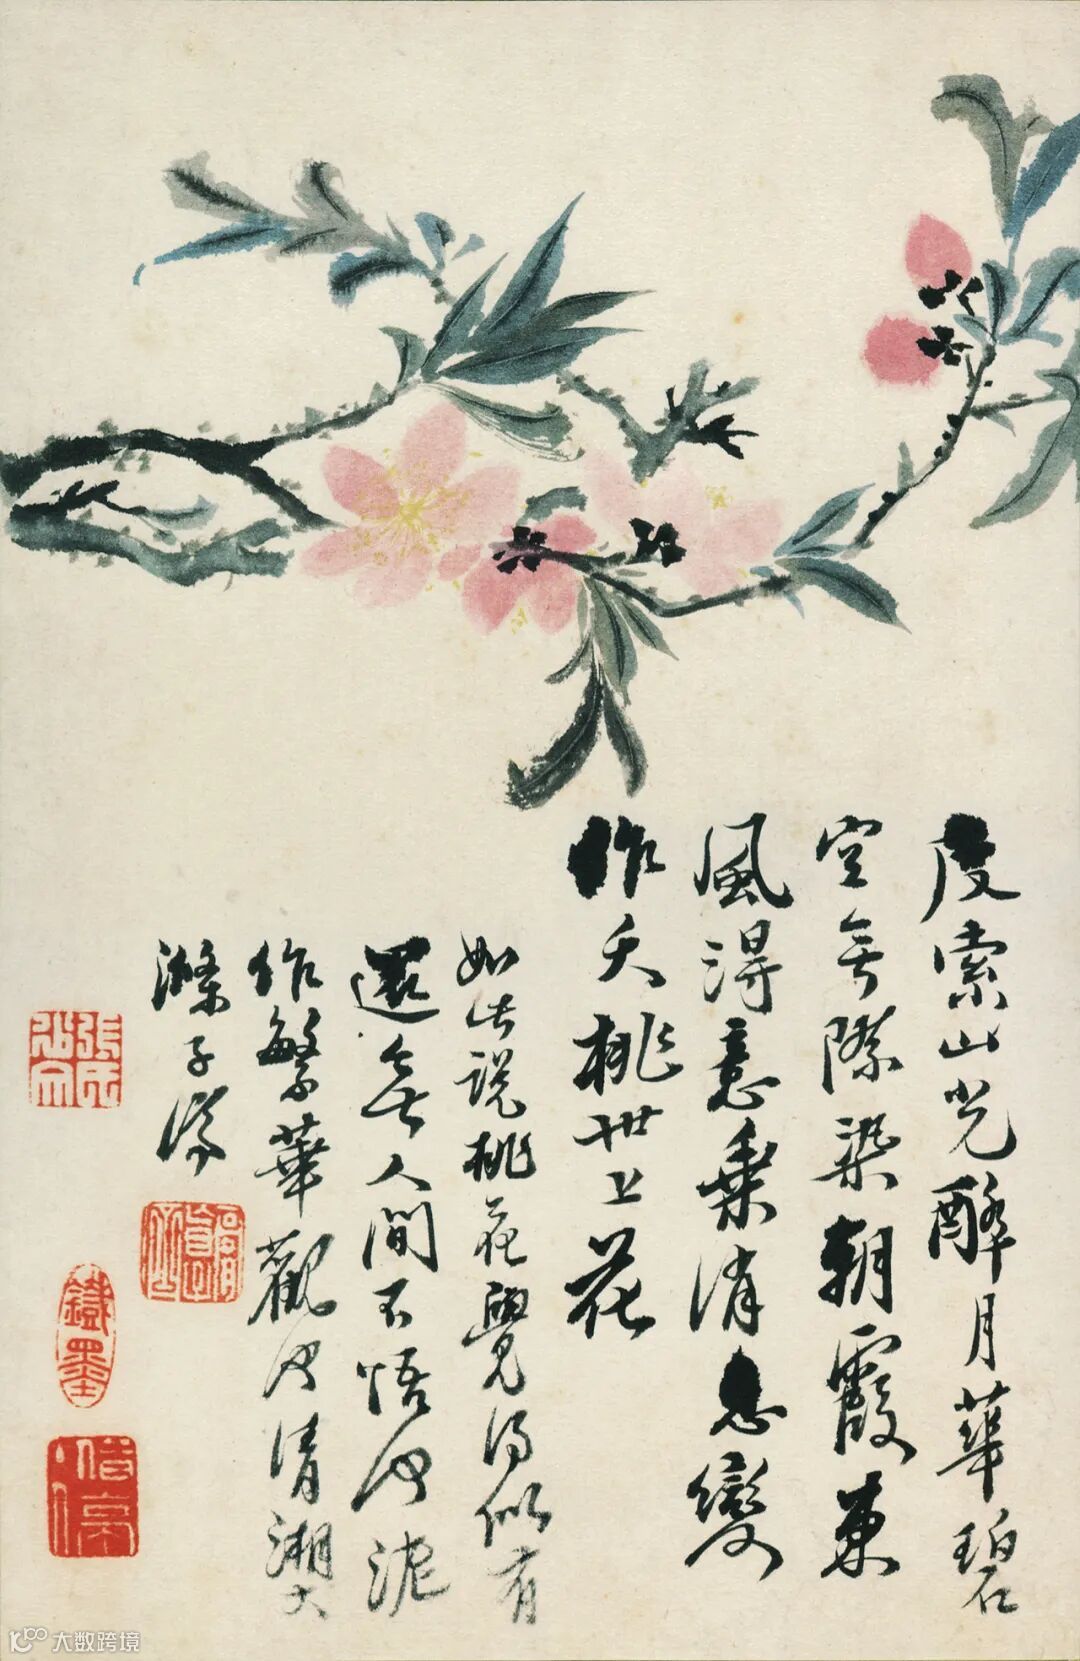 度索山光醉月華碧
空無際染朝霞東
風得意乘消息變
作夭桃世上花
如此說桃花覺得似有
還無人間不悟何泥
作繁華觀也清湘大
滌子濟
張氏
鐵墨
大数跨境